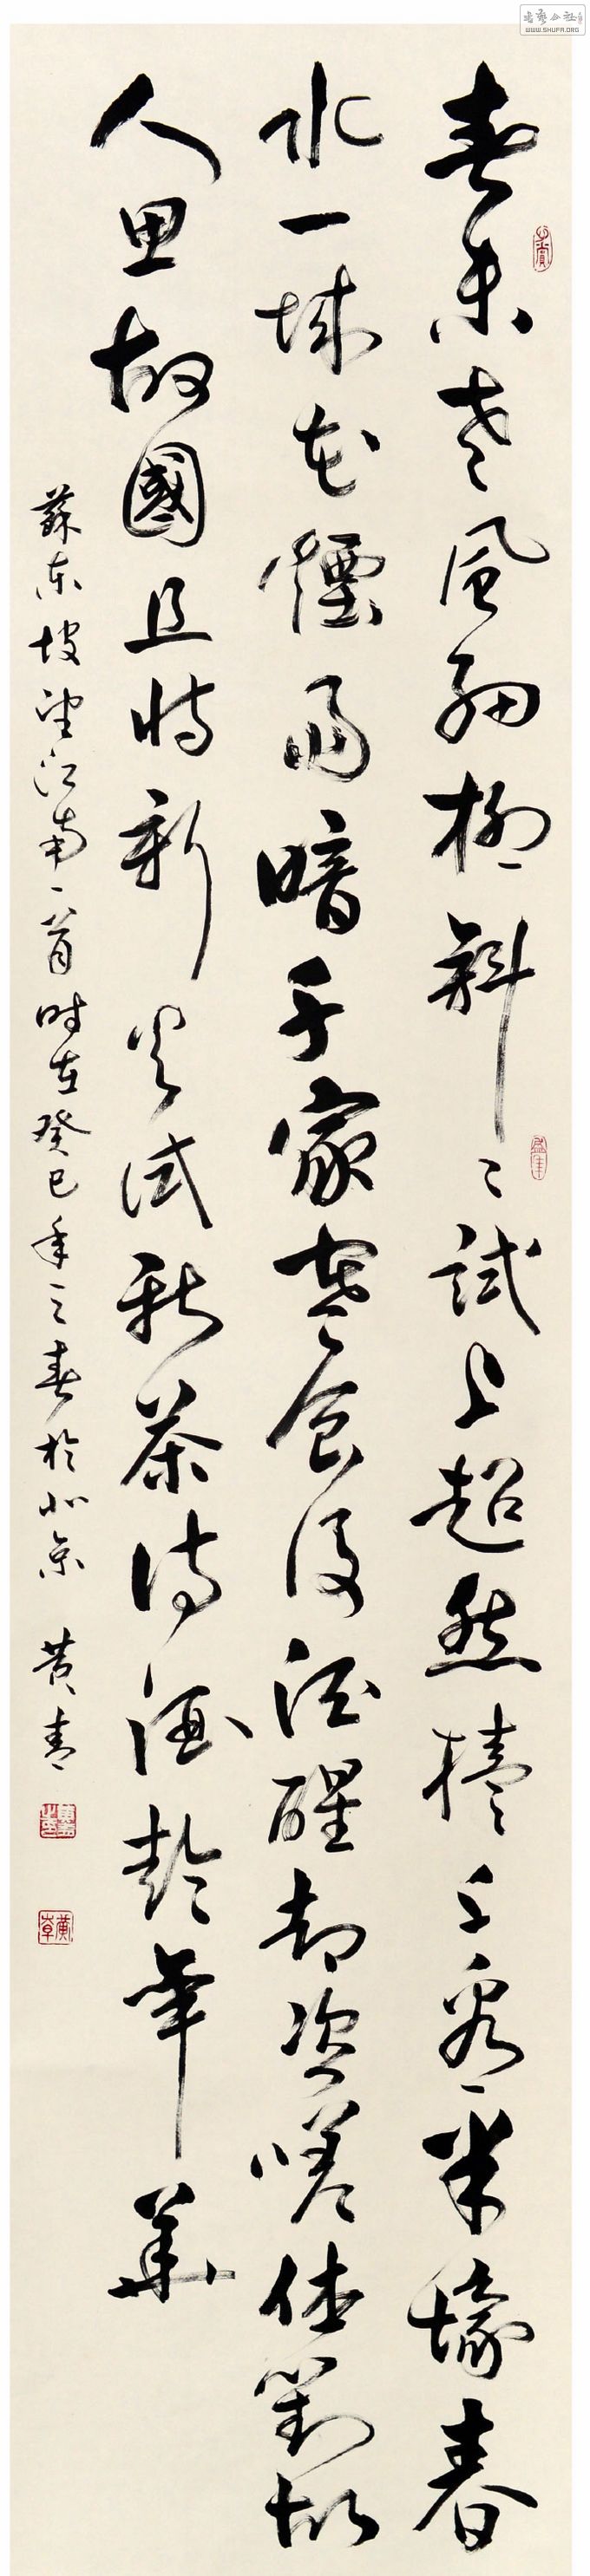 春未老風細柳斜〻試上超然檯上看半壕春
水一城花煙雨暗千家寒食後酒醒却咨嗟休對故
人思故國且將新火試新茶詩酒趁年華
蘇東坡望江南一首時在癸巳年之春於北京 黄青
WWW.SHUFA.ORG